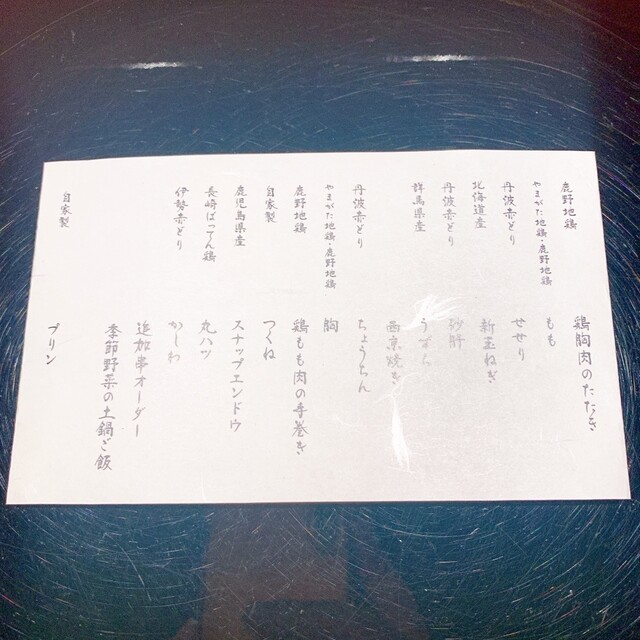 鹿野地鶏 鶏胸肉のたたき
やまがた地鶏・鹿野地鶏 もも
丹波赤どり せせり
北海道産 新玉ねぎ
丹波赤どり 砂肝
群馬県産 うずら
西京焼き
丹波赤どり ちょうちん
やまがた地鶏・鹿野地鶏 胸
鹿野地鶏 鶏もも肉の手巻き
自家製 つくね
鹿児島県産 スナップエンドウ
長崎ばってん鶏 丸ハツ
伊勢赤どり かしわ
追加串オーダー
季節野菜の土鍋ご飯
自家製 プリン